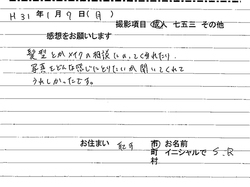 H31年1月9日(月)
撮影項目 成人 七五三 その他
感想をお願いします
髪型とかメイクの相談にのってくれたり
写真をどんな感じにとりたいか聞いてくれて
うれしかったです。
お住まい
市 お名前
町 イニシャルで S.R
村